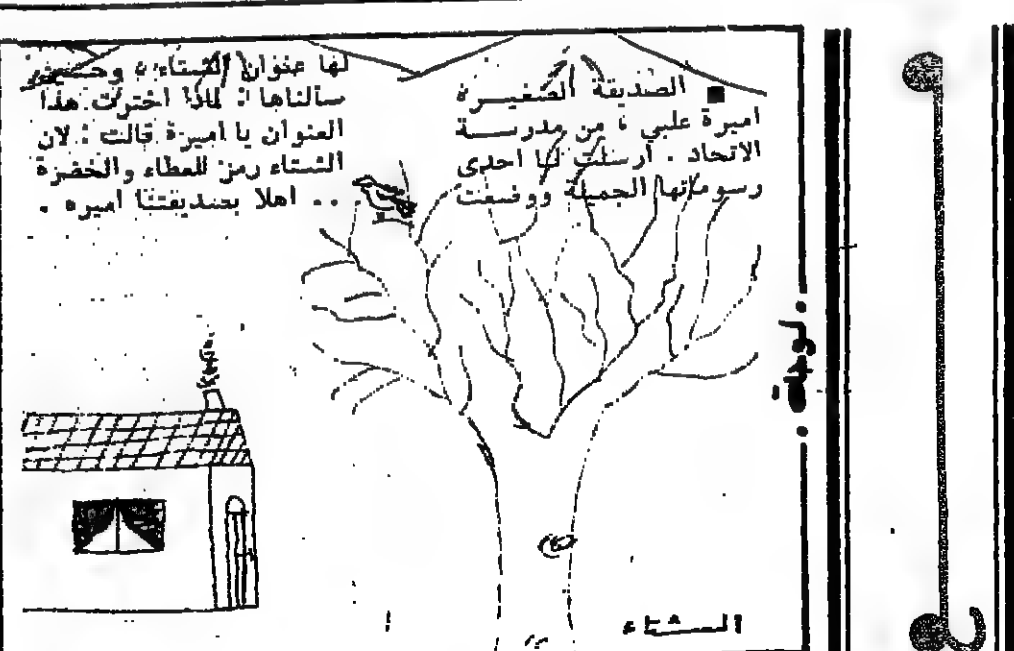 ■ الصديقة الصغيـــرة
اميرة علبي ، من مدرســـة
الاتحاد . ارسلت لنا احدى
رسوماتها الجميلة ووضعت
لها عنوان الشتاء ، وحـــين
سألناها : لماذا اخترت هذا
العنوان يا اميرة قالت : لان
الشتاء رمز للعطاء والخضرة
. . . اهلا بصديقتنا اميره .
. لوحة .
الــشتاء